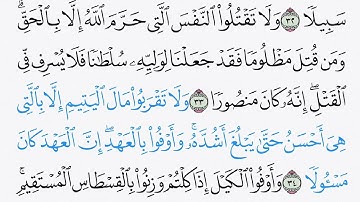 سَبِيلًا ٣٢ وَلَا تَقْتُلُوا۟ ٱلنَّفْسَ ٱلَّتِى حَرَّمَ ٱللَّهُ إِلَّا بِٱلْحَقِّ ۗ
وَمَن قُتِلَ مَظْلُومًا فَقَدْ جَعَلْنَا لِوَلِيِّهِۦ سُلْطَٰنًا فَلَا يُسْرِف فِّى
ٱلْقَتْلِ ۖ إِنَّهُۥ كَانَ مَنصُورًا ٣٣ وَلَا تَقْرَبُوا۟ مَالَ ٱلْيَتِيمِ إِلَّا بِٱلَّتِى
هِىَ أَحْسَنُ حَتَّىٰ يَبْلُغَ أَشُدَّهُۥ ۚ وَأَوْفُوا۟ بِٱلْعَهْدِ ۖ إِنَّ ٱلْعَهْدَ كَانَ
مَسْـُٔولًا ٣٤ وَأَوْفُوا۟ ٱلْكَيْلَ إِذَا كِلْتُمْ وَزِنُوا۟ بِٱلْقِسْطَاسِ ٱلْمُسْتَقِيمِ ۚ